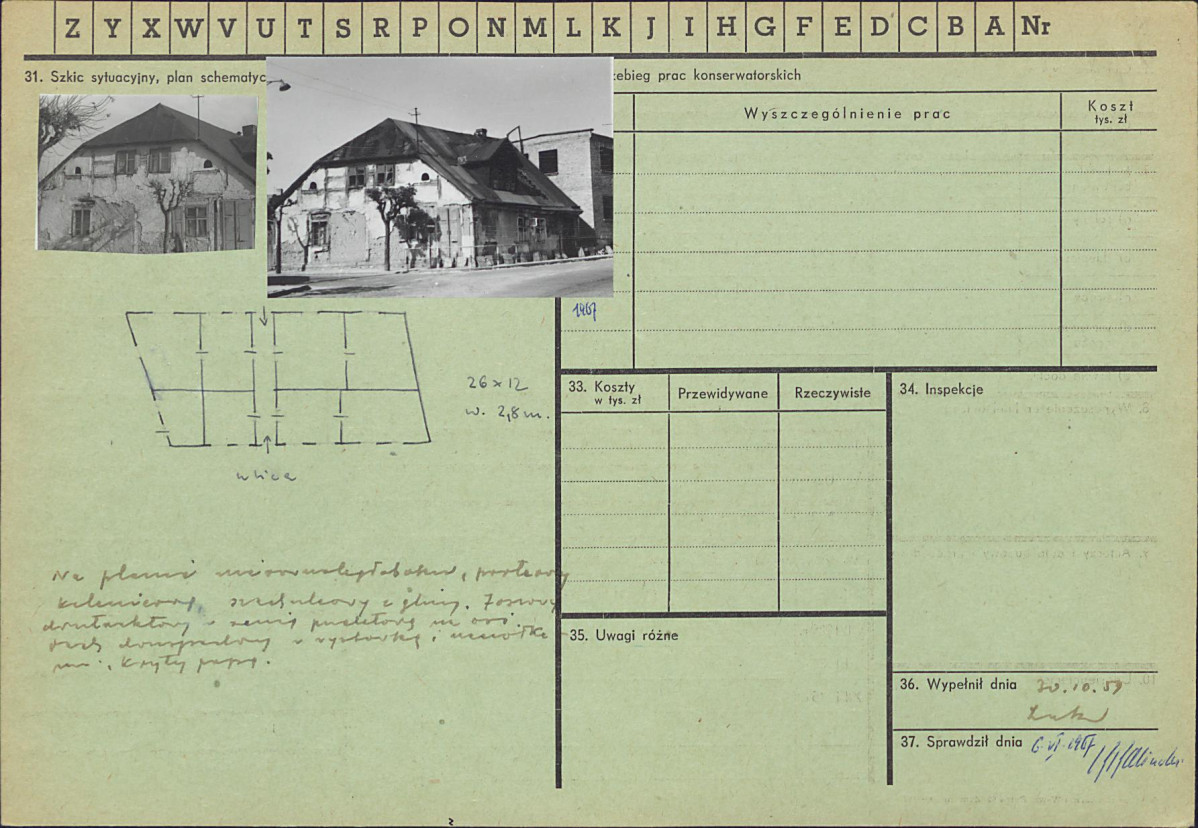 Z Y X W V U T S R P O N M L K J I H G F E D C B A Nr
31. Szkic sytuacyjny, plan schematyc
zebieg prac konserwatorskich
Wyszczególnienie prac
Koszt
tys. zł
1967
26 x 12
w. 2,8 m.
ulica
Na planie
z gliny.
dwutraktowy z sienią na osi.
i
kryty papą.
33. Koszty
w tys. zł
Przewidywane
Rzeczywiste
34. Inspekcje
35. Uwagi różne
36. Wypełnił dnia 30.10.59
37. Sprawdził dnia 6 VI 1967